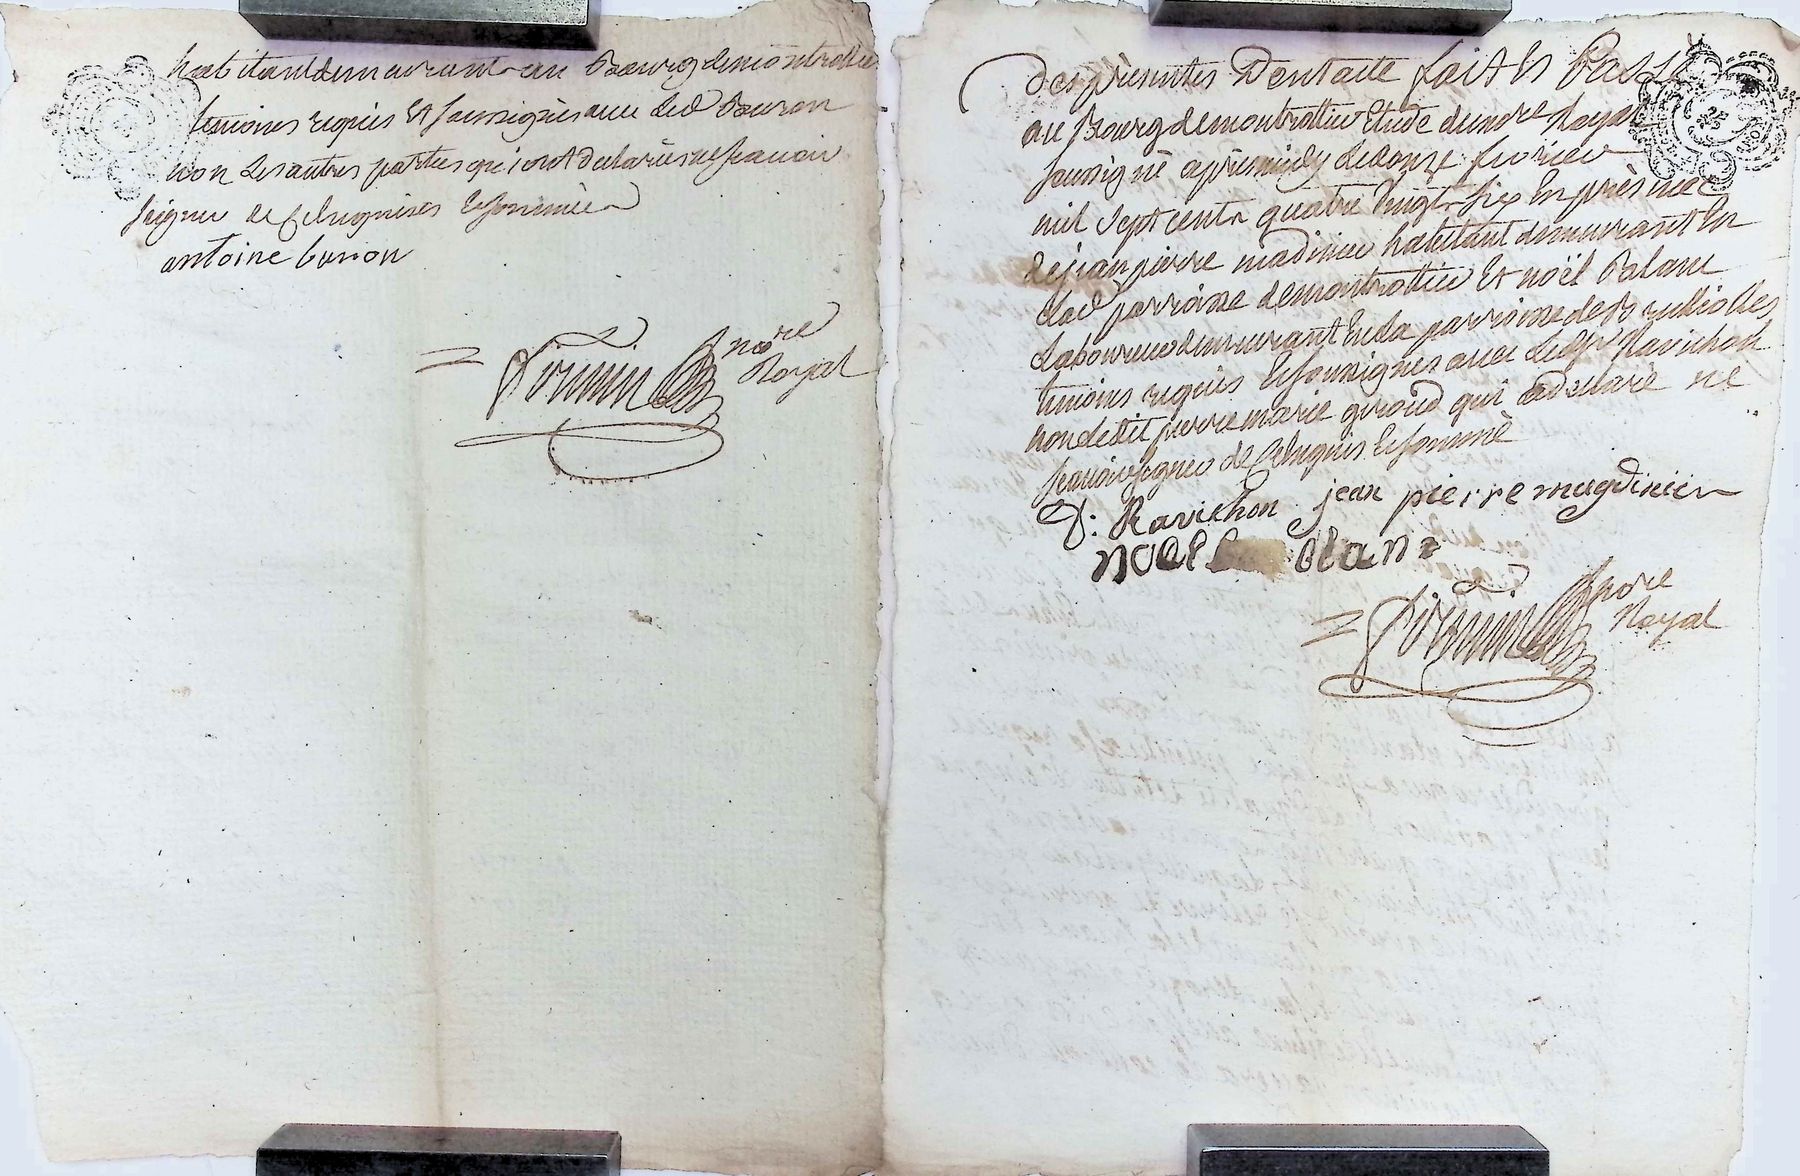 habitant demeurant au Bourg de montrottier
temoins requis Et soussignés avec led Buron
non Les autres parties qui ont declarés ne scavoir
signer de ce Enquises Et sommées
antoine buron
nore
Royal
des presentes Dont acte fait Et Passé
au Bourg de montrottier Etude du nore Royal
soussigné apres midy le douze fevrier
mil sept cent quatre vingt six En présence
de jean pierre madinier habitant demeurant En
lad parroisse de montrottier Et noël Balanc
Laboureur demeurant En la parroisse de Brullioles
temoins requis Et soussignés avec led sr Ravichon
non ledit pierre marie giroud qui a declaré ne
scavoir signer de ce Enquis Et sommé
D: Ravichon jean pierre magdinier
noel blanc
nore
Royal